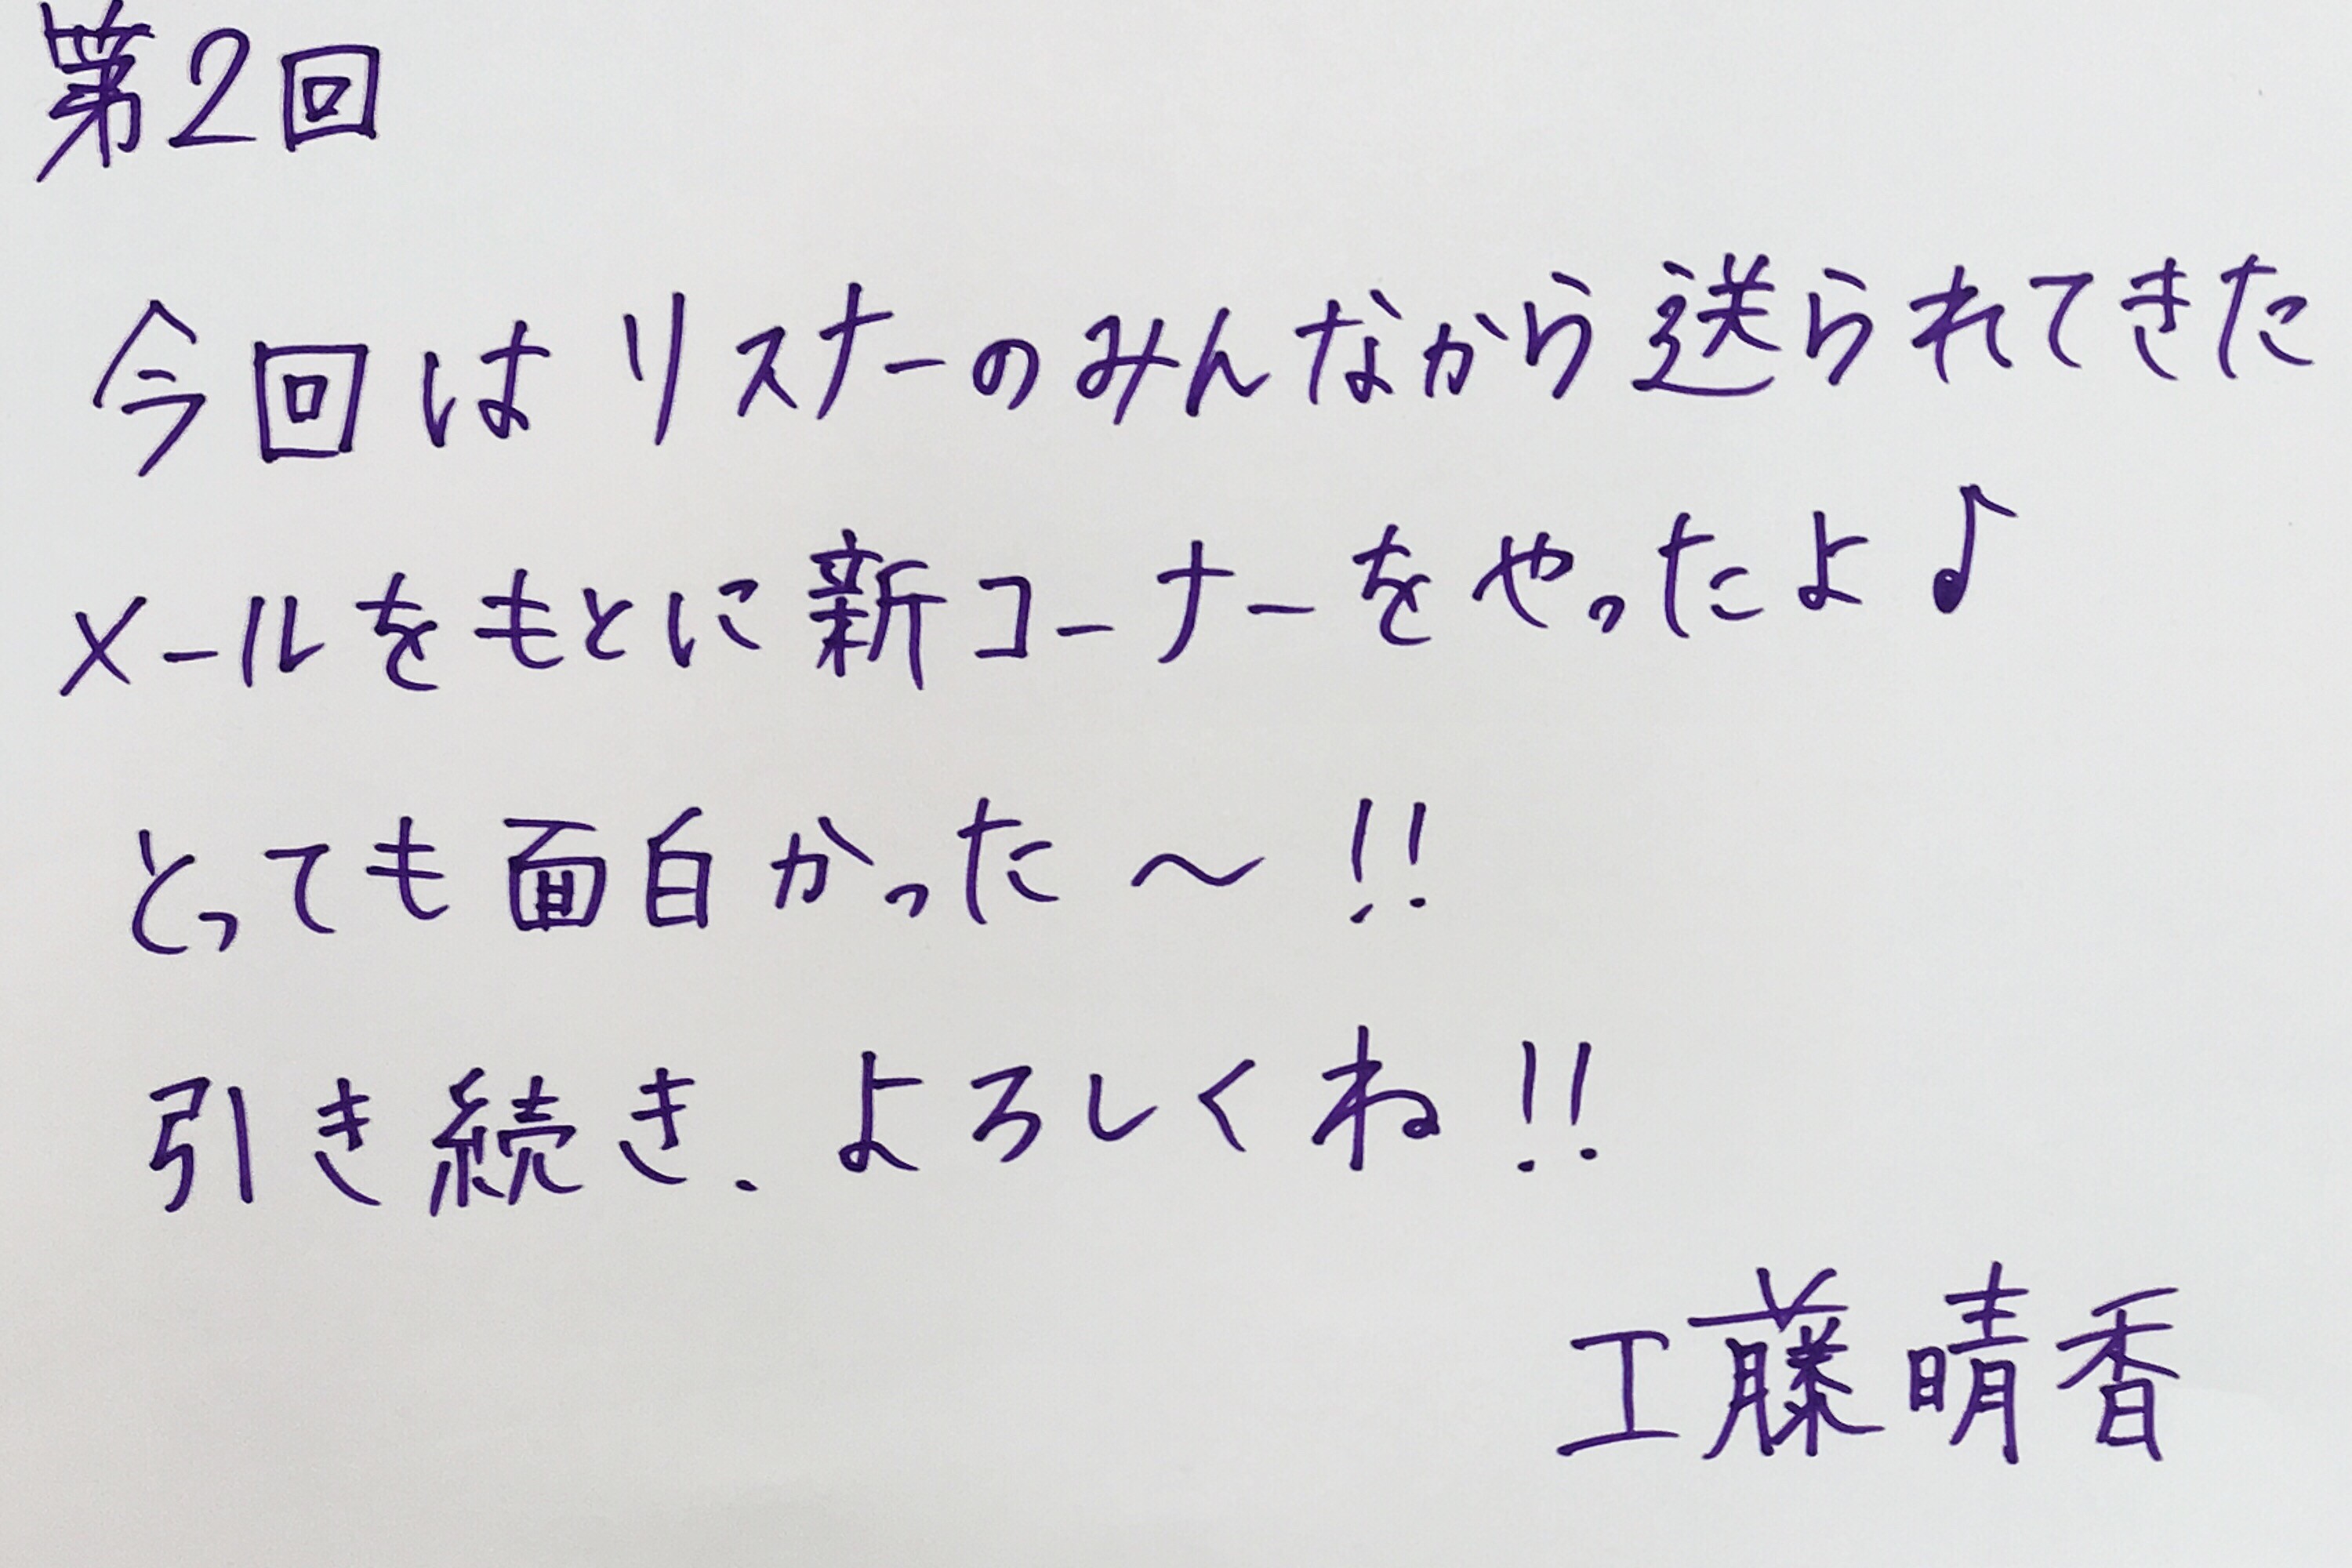 第2回
今回はリスナーのみんなから送られてきた
メールをもとに新コーナーをやったよ♪
とっても面白かった〜!!
引き続き、よろしくね!!
工藤晴香